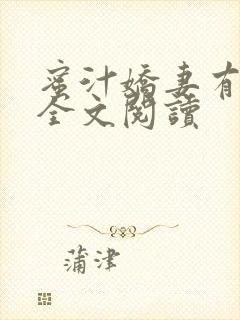 蜜汁嬌妻有
全文閱讀
蒲津